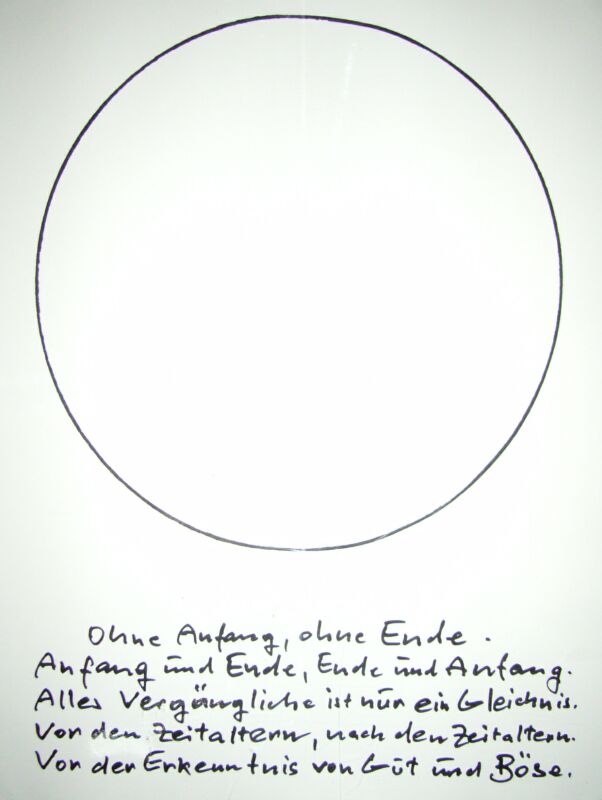 Ohne Anfang, ohne Ende.
Anfang und Ende, Ende und Anfang.
Alles Vergängliche ist nur ein Gleichnis.
Vor den Zeitaltern, nach den Zeitaltern.
Vor der Erkenntnis von Gut und Böse.